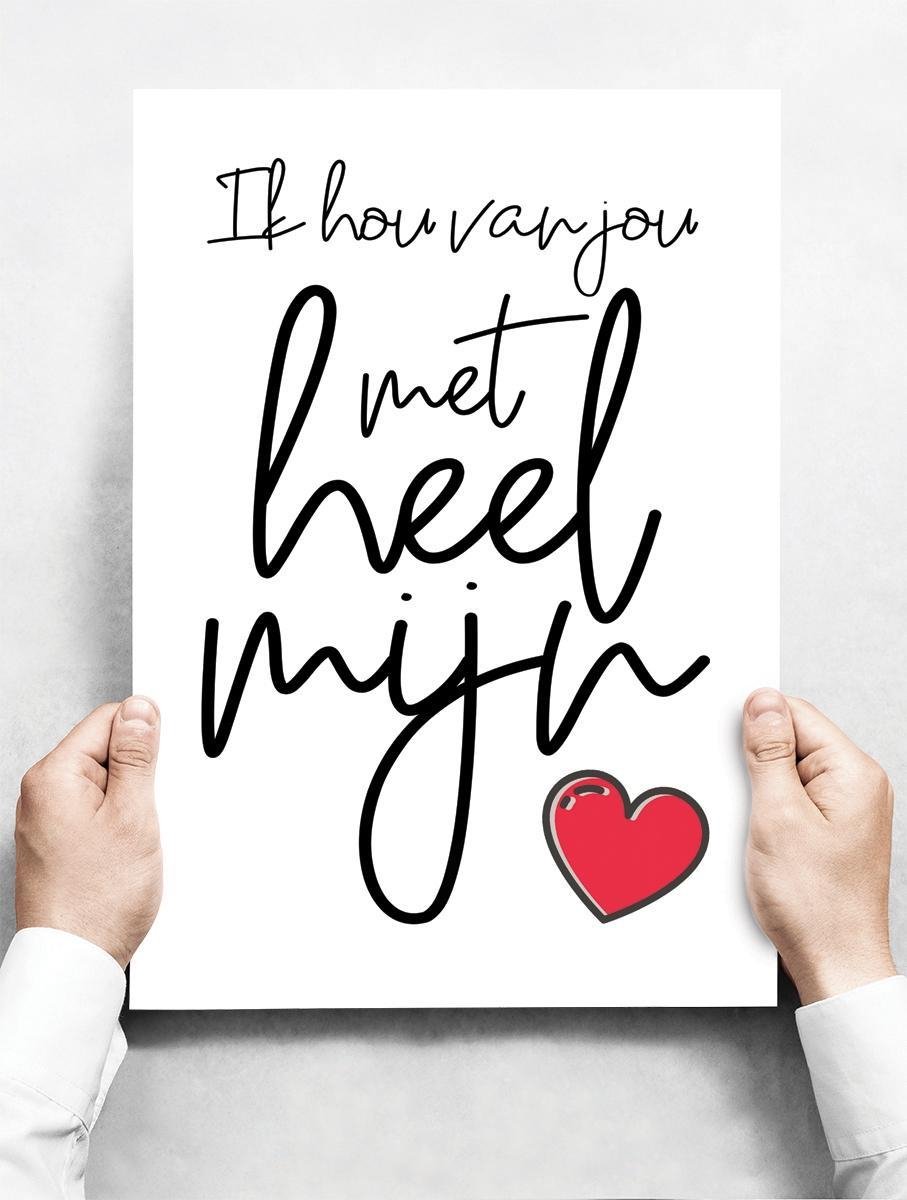 Ik hou van jou
met
heel
mijn